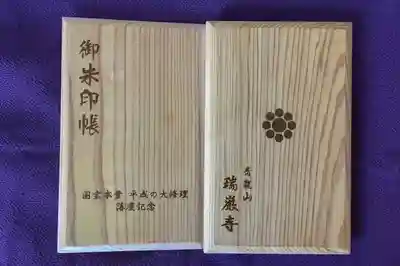 御朱印帳
国宝本堂 平成の大修理
落慶記念
青龍山
瑞巌寺